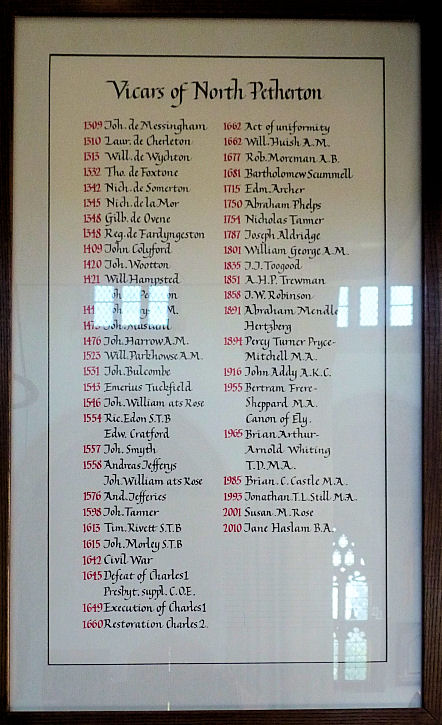 Vicars of North Petherton
1309 Joh. de Messingham
1310 Laur. de Cherleton
1313 Will. de Wychton
1332 Tho. de Foxtone
1342 Nich. de Somerton
1345 Nich. de la Mor
1348 Gilb. de Ovene
1348 Reg. de Fardyngeston
1409 John Colyford
1420 Joh. Wootton
1421 Will Hampsted
Joh.
M.
Joh. Mustard
1476 Joh. Harrow A.M.
1523 Will. Parkhowse A.M.
1531 Joh. Bulcombe
1543 Emerius Tuckfield
1546 Joh. William ats Rose
1554 Ric. Edon S.T.B
Edw. Cratford
1557 Joh. Smyth
1558 Andreas Jefferys
Joh William ats Rose
1576 And. Jefferies
1598 Joh. Tanner
1613 Tim. Rivett S.T.B
1615 Joh. Morley S.T.B
1642 Civil War
1645 Defeat of Charles 1
Presbyt. suppl. C.O.E.
1649 Execution of Charles 1
1660 Restoration Charles 2.
1662 Act of uniformity
1662 Will. Huish A.M.
1677 Rob. Moreman A.B.
1681 Bartholomew Scummell
1715 Edm. Archer
1750 Abraham Phelps
1754 Nicholas Tanner
1787 Joseph Aldridge
1801 William George A.M.
1835 J.J. Toogood
1851 A.H.P. Trewman
1858 J.W. Robinson
1891 Abraham Mendle
Hertzberg
1894 Percy Turner Pryce-
Mitchell M.A.
1916 John Addy A.K.C.
1955 Bertram Frere-
Sheppard M.A.
Canon of Ely.
1965 Brian Arthur-
Arnold Whiting
T.D.M.A.
1985 Brian. C. Castle M.A.
1993 Jonathan T.L. Still M.A.
2001 Susan. M. Rose
2010 Jane Haslam B.A.